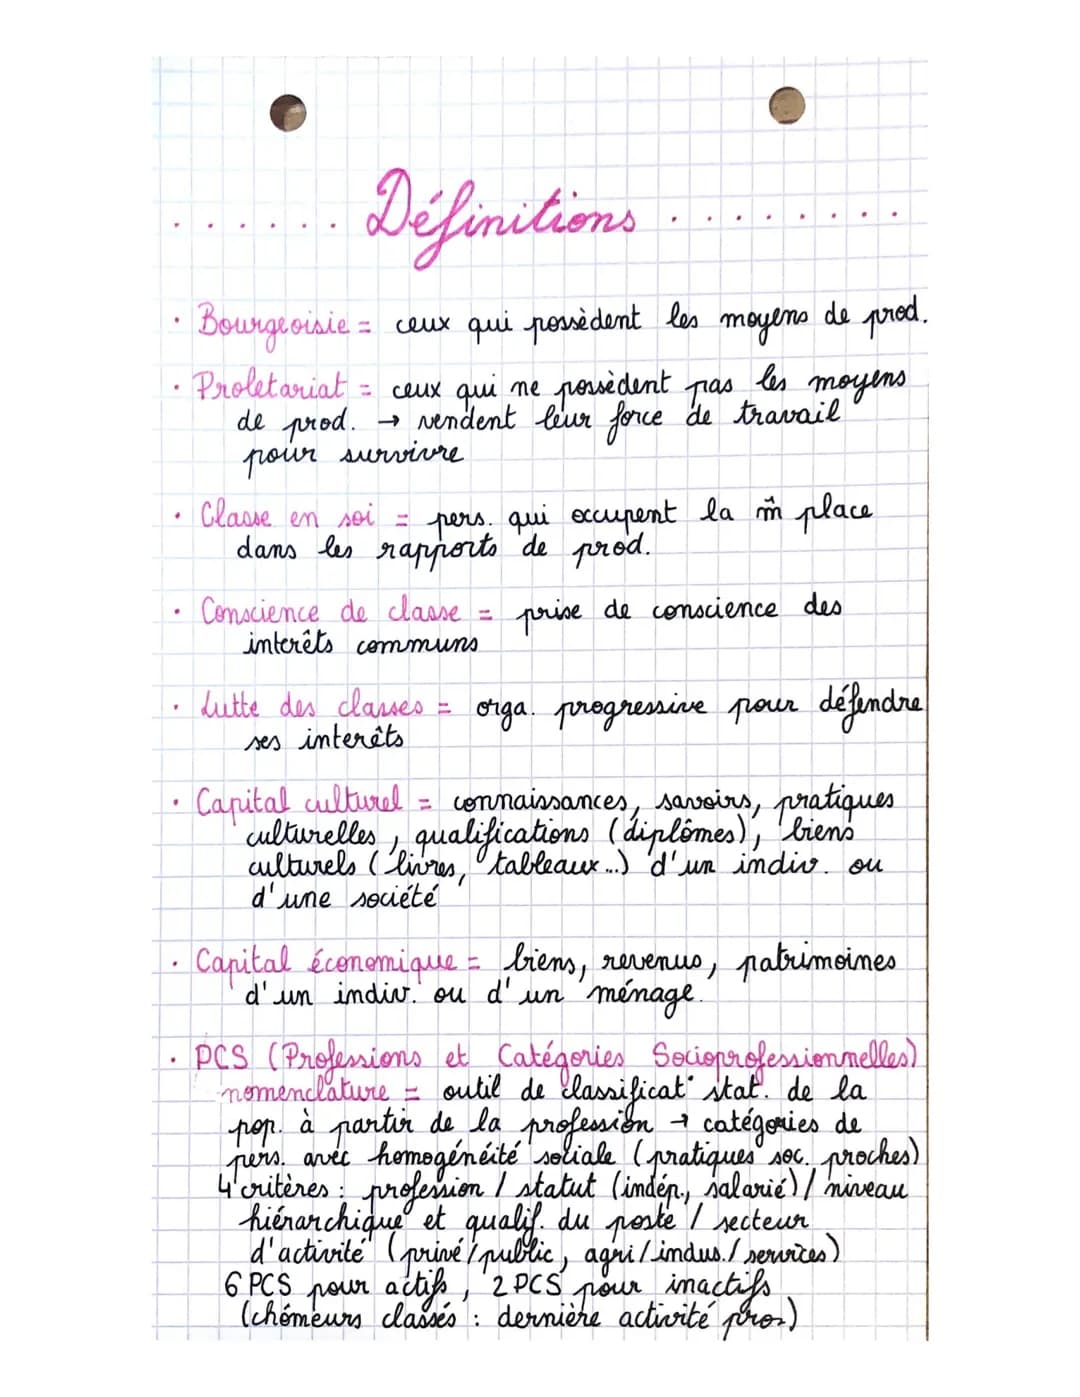 ...... Définitions ........
· Bourgeoisie = ceux qui possèdent les moyens de prod.
· Proletariat = ceux qui ne possèdent pas les moyens
de prod. → vendent leur force de travail
pour survivre
· Classe en soi = pers. qui occupent la m̂ place
dans les rapports de prod.
· Conscience de classe = prise de conscience des
interêts communs
· Lutte des classes = orga. progressive pour défendre
ses interêts
· Capital culturel = connaissances, savoirs, pratiques
culturelles, qualifications (diplômes), biens
culturels (livres, tableaux...) d'un indiv. ou
d'une société
· Capital économique = biens, revenus, patrimoines
d'un indiv. ou d'un ménage.
· PCS (Professions et Catégories Socioprofessionnelles)
nomenclature = outil de classificat° stat. de la
pop. à partir de la profession → catégories de
pers. avec homogénéité sociale (pratiques soc. proches)
4 critères : profession / statut (indép., salarié) / niveau
hiérarchique et qualif. du poste / secteur
d'activité (privé/public, agri/indus./services)
6 PCS pour actifs, 2 PCS pour inactifs
(chômeurs classés : dernière activité pro)